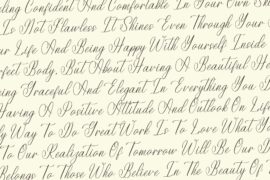 ling Confident And Comfortable In Your Own Sk
Is Not Flawless It Shines Even Through Your
ur Life And Being Happy With Yourself Inside
rfect Body. But About Having A Beautiful He
eing Graceful And Elegant In Everything You D
Having A Positive Attitude And Outlook On Life
ly Way To Do Great Work Is To Love What Yo
To Our Realization Of Tomorrow Will Be Our D
Belongs To Those Who Believe In The Beauty Of